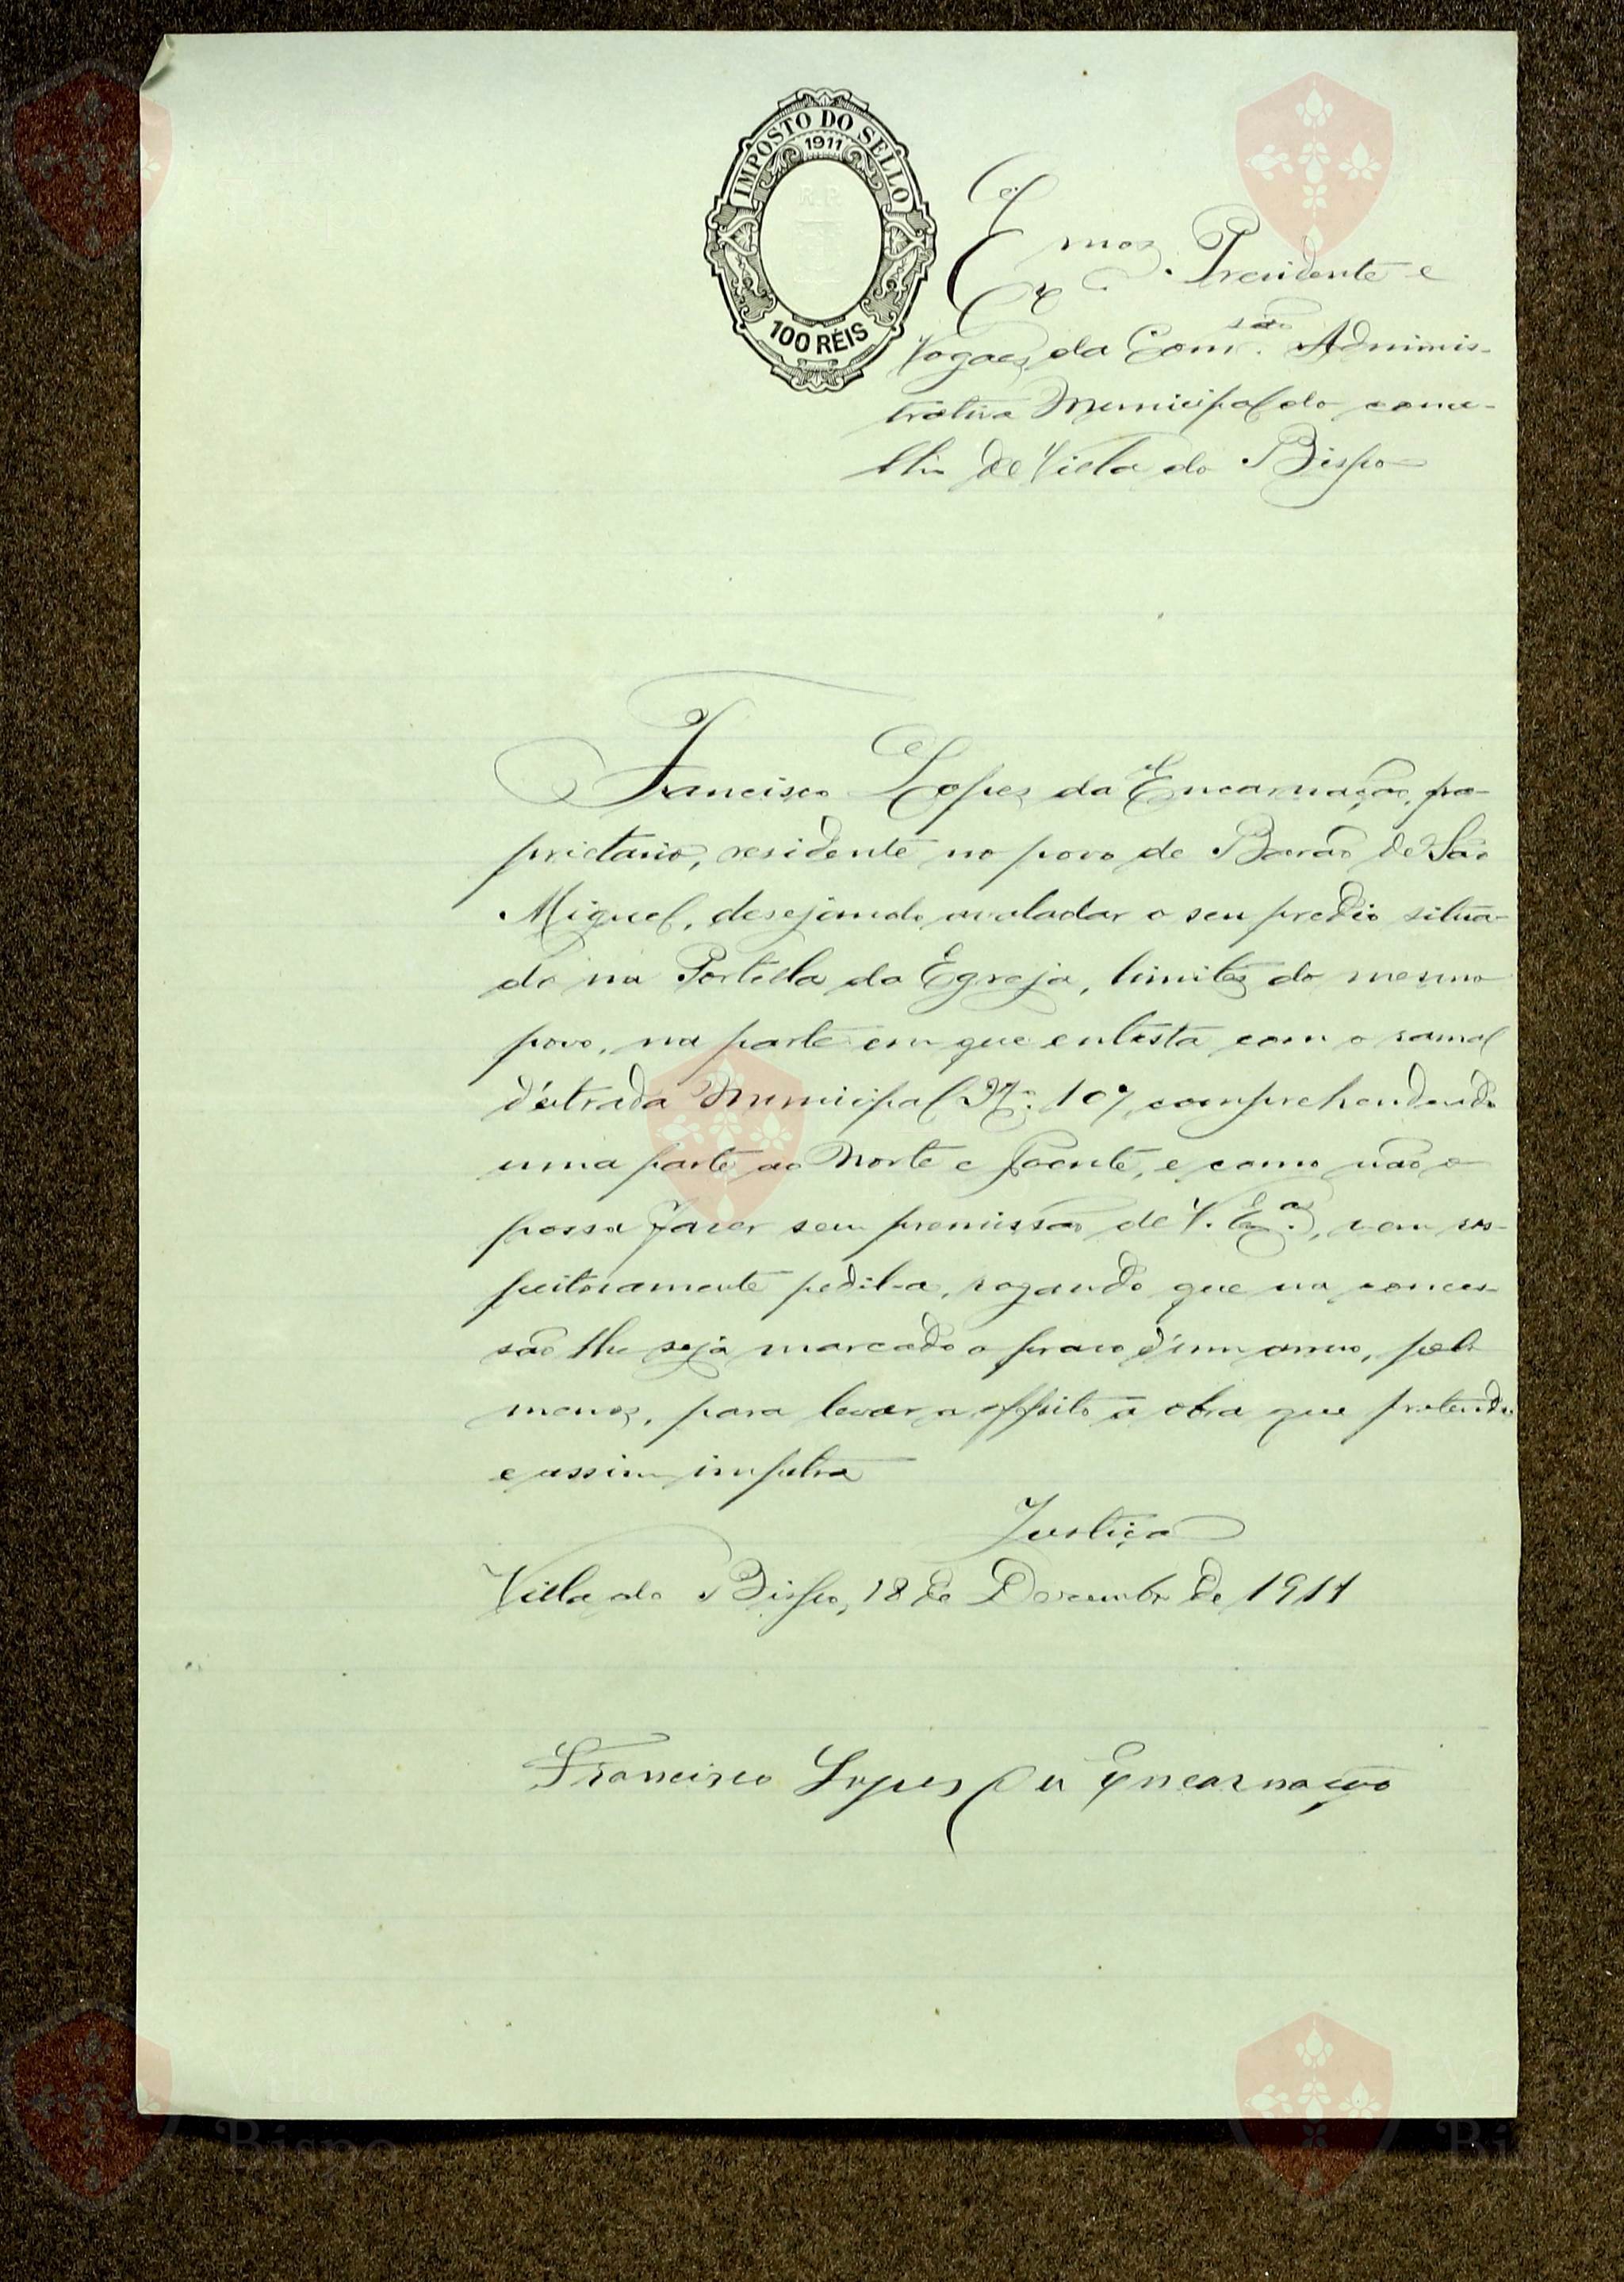 IMPOSTO DO SELLO
1911
R P
100 RÉIS
Ex.mos Presidente e
Vogaes da Com.são Adminis-
trativa Municipal do conce-
lho de Villa do Bispo
Francisco Lopes da Encarnação, pro-
prietario, residente no povo de Barão de São
Miguel, desejando avaladar o seu predio situa-
do na Portella da Egreja, limites do mesmo
povo, na parte em que entesta com o ramal
d'estrada Municipal N.º 107, comprehendendo
uma parte ao Norte e Poente, e como não o
possa fazer sem premissão de V. Ex.as, vem res-
peitosamente pedil-a, rogando que na conces-
são lhe seja marcado o praso d'um anno, pelo
menos, para levar a effeito a obra que pretende
e assim impetra
Justiça
Villa do Bispo, 18 de Dezembro de 1911
Francisco Lopes da Encarnação
Bispo